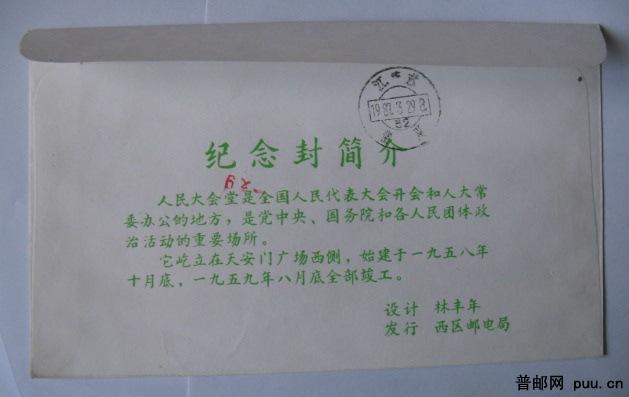 江苏
1987.3.29.8
纪念封简介
人民大会堂是全国人民代表大会开会和人大常
委办公的地方，是党中央、国务院和各人民团体政
治活动的重要场所。
它屹立在天安门广场西侧，始建于一九五八年
十月底，一九五九年八月底全部竣工。
设计 林丰年
发行 西区邮电局
普邮网 puu.cn